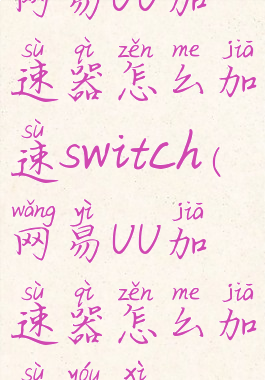 网易UU加
sù qì zěn me jiā
速器怎么加
sù
速switch(
wǎng yì jiā
网易UU加
sù qì zěn me jiā
速器怎么加
sù yóu xì